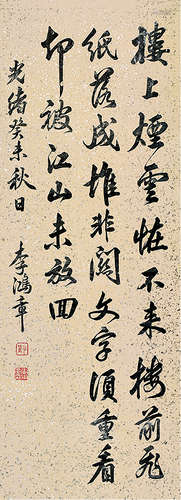 樓上煙雲怪不來樓前飛
紙落成堆非關文字須重看
却被江山未放回
光緒癸未秋日
李鴻章